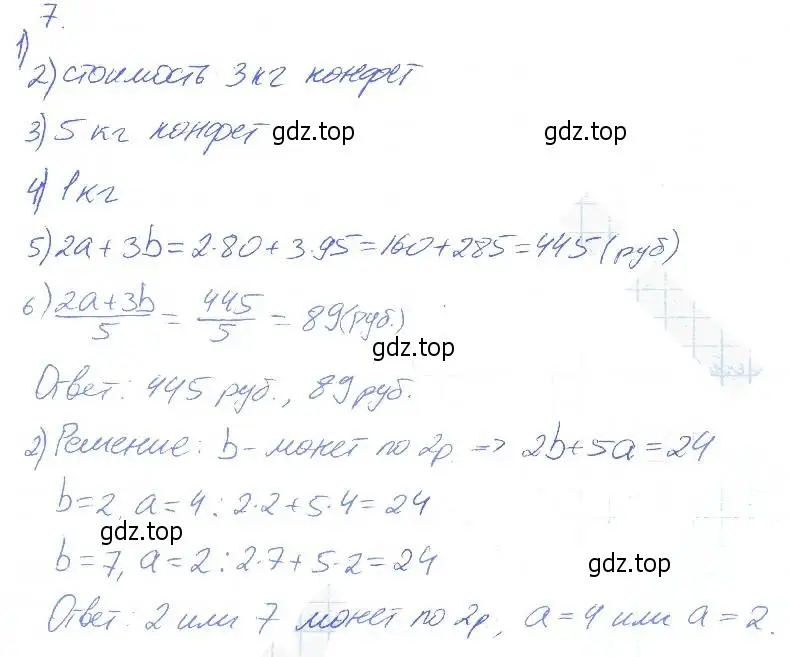 7.
1)
2) стоимость 3 кг конфет
3) 5 кг конфет gdz.top gdz.top
4) 1 кг
5) 2a + 3b = 2·80 + 3·95 = 160 + 285 = 445 (руб)
6) (2a+3b)/5 = 445/5 = 89 (руб.)
gdz.top
Ответ: 445 руб., 89 руб.
2) Решение: b - монет по 2р. => 2b+5a=24
b=2, a=4: 2·2+5·4=24
gdz.top
b=7, a=2: 2·7+5·2=24
gdz.top
Ответ: 2 или 7 монет по 2р, a=4 или a=2.